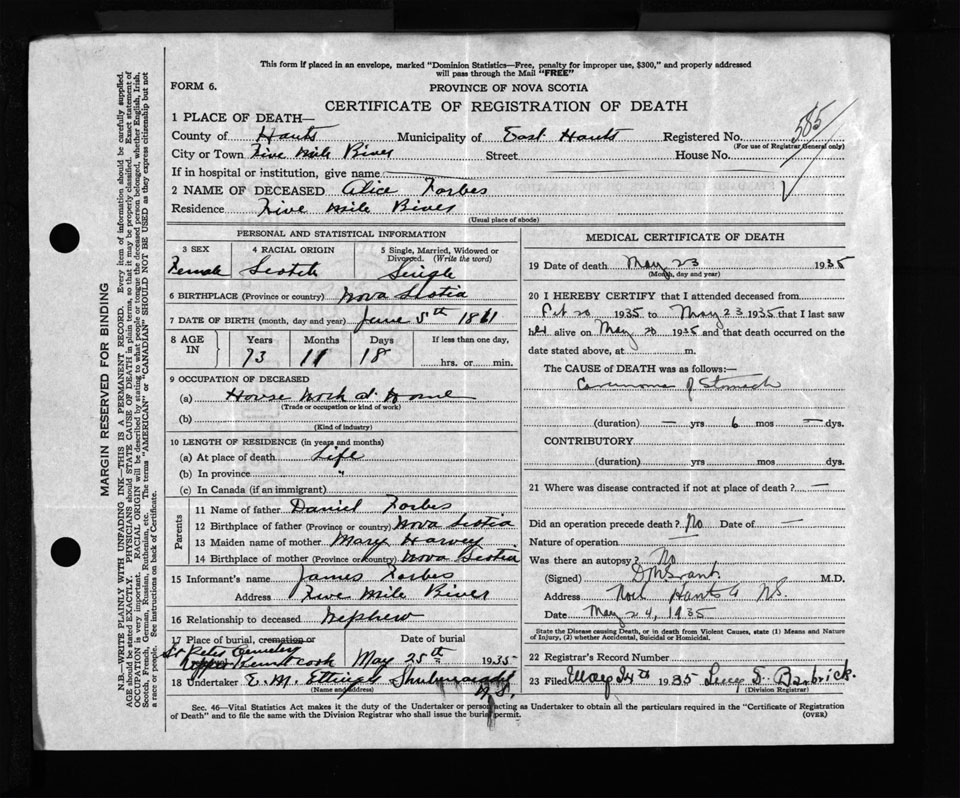 This form if placed in an envelope, marked "Dominion Statistics—Free, penalty for improper use, $300," and properly addressed
will pass through the Mail "FREE"
FORM 6.
PROVINCE OF NOVA SCOTIA
CERTIFICATE OF REGISTRATION OF DEATH
1 PLACE OF DEATH—
County of Hants Municipality of East Hants Registered No. 585
(For use of Registrar General only)
City or Town Five Mile River Street House No.
If in hospital or institution, give name
2 NAME OF DECEASED Alice Forbes
Residence Five Mile River
(Usual place of abode)
PERSONAL AND STATISTICAL INFORMATION
3 SEX 4 RACIAL ORIGIN 5 Single, Married, Widowed or
Divorced. (Write the word)
Female Scotch Single
6 BIRTHPLACE (Province or country) Nova Scotia
7 DATE OF BIRTH (month, day and year) June 5th 1861
8 AGE IN Years Months Days If less than one day,
73 11 18 hrs. or min.
9 OCCUPATION OF DECEASED
(a) House Work at Home
(Trade or occupation or kind of work)
(b)
(Kind of industry)
10 LENGTH OF RESIDENCE (in years and months)
(a) At place of death Life
(b) In province "
(c) In Canada (if an immigrant)
Parents
11 Name of father Daniel Forbes
12 Birthplace of father (Province or country) Nova Scotia
13 Maiden name of mother Mary Harvey
14 Birthplace of mother (Province or country) Nova Scotia
15 Informant's name James Forbes
Address Five Mile River
16 Relationship to deceased Nephew
17 Place of burial, cremation or Date of burial
Cemetery
Upper Kennetcook May 25th 1935
18 Undertaker E. M. Ettinger Shubenacadie
(Name and address) N.S.
MEDICAL CERTIFICATE OF DEATH
19 Date of death May 23 1935
(Month, day and year)
20 I HEREBY CERTIFY that I attended deceased from
Feb 20 1935 to May 23 1935 that I last saw
her alive on May 20 1935 and that death occurred on the
date stated above, at m.
The CAUSE of DEATH was as follows:—
Carcinoma of Stomach
(duration) — yrs 6 mos — dys.
CONTRIBUTORY
(duration) yrs mos dys.
21 Where was disease contracted if not at place of death? —
Did an operation precede death? No Date of —
Nature of operation —
Was there an autopsy? No
(Signed) M.D.
Address Noel Hants Co NS.
Date May 24, 1935
State the Disease causing Death, or in death from Violent Causes, state (1) Means and Nature
of Injury, (2) whether Accidental, Suicidal or Homicidal.
22 Registrar's Record Number
23 Filed May 24th 1935 Lucy S. Barbrick.
(Division Registrar)
Sec. 46—Vital Statistics Act makes it the duty of the Undertaker or person acting as Undertaker to obtain all the particulars required in the "Certificate of Registration
of Death" and to file the same with the Division Registrar who shall issue the burial permit. (OVER)
MARGIN RESERVED FOR BINDING
N.B.—WRITE PLAINLY WITH UNFADING INK—THIS IS A PERMANENT RECORD. Every item of information should be carefully supplied.
AGE should be stated EXACTLY. PHYSICIANS should STATE CAUSE OF DEATH in plain terms, so that it may be properly classified. Exact statement of
OCCUPATION is very important. RACIAL ORIGIN will be described by stating to what people or tongue the deceased person belonged, whether English, Irish,
Scotch, French, German, Russian, Ruthenian, etc. The terms "AMERICAN" or "CANADIAN" SHOULD NOT BE USED as they express citizenship but not
a race or people. See instructions on back of Certificate.